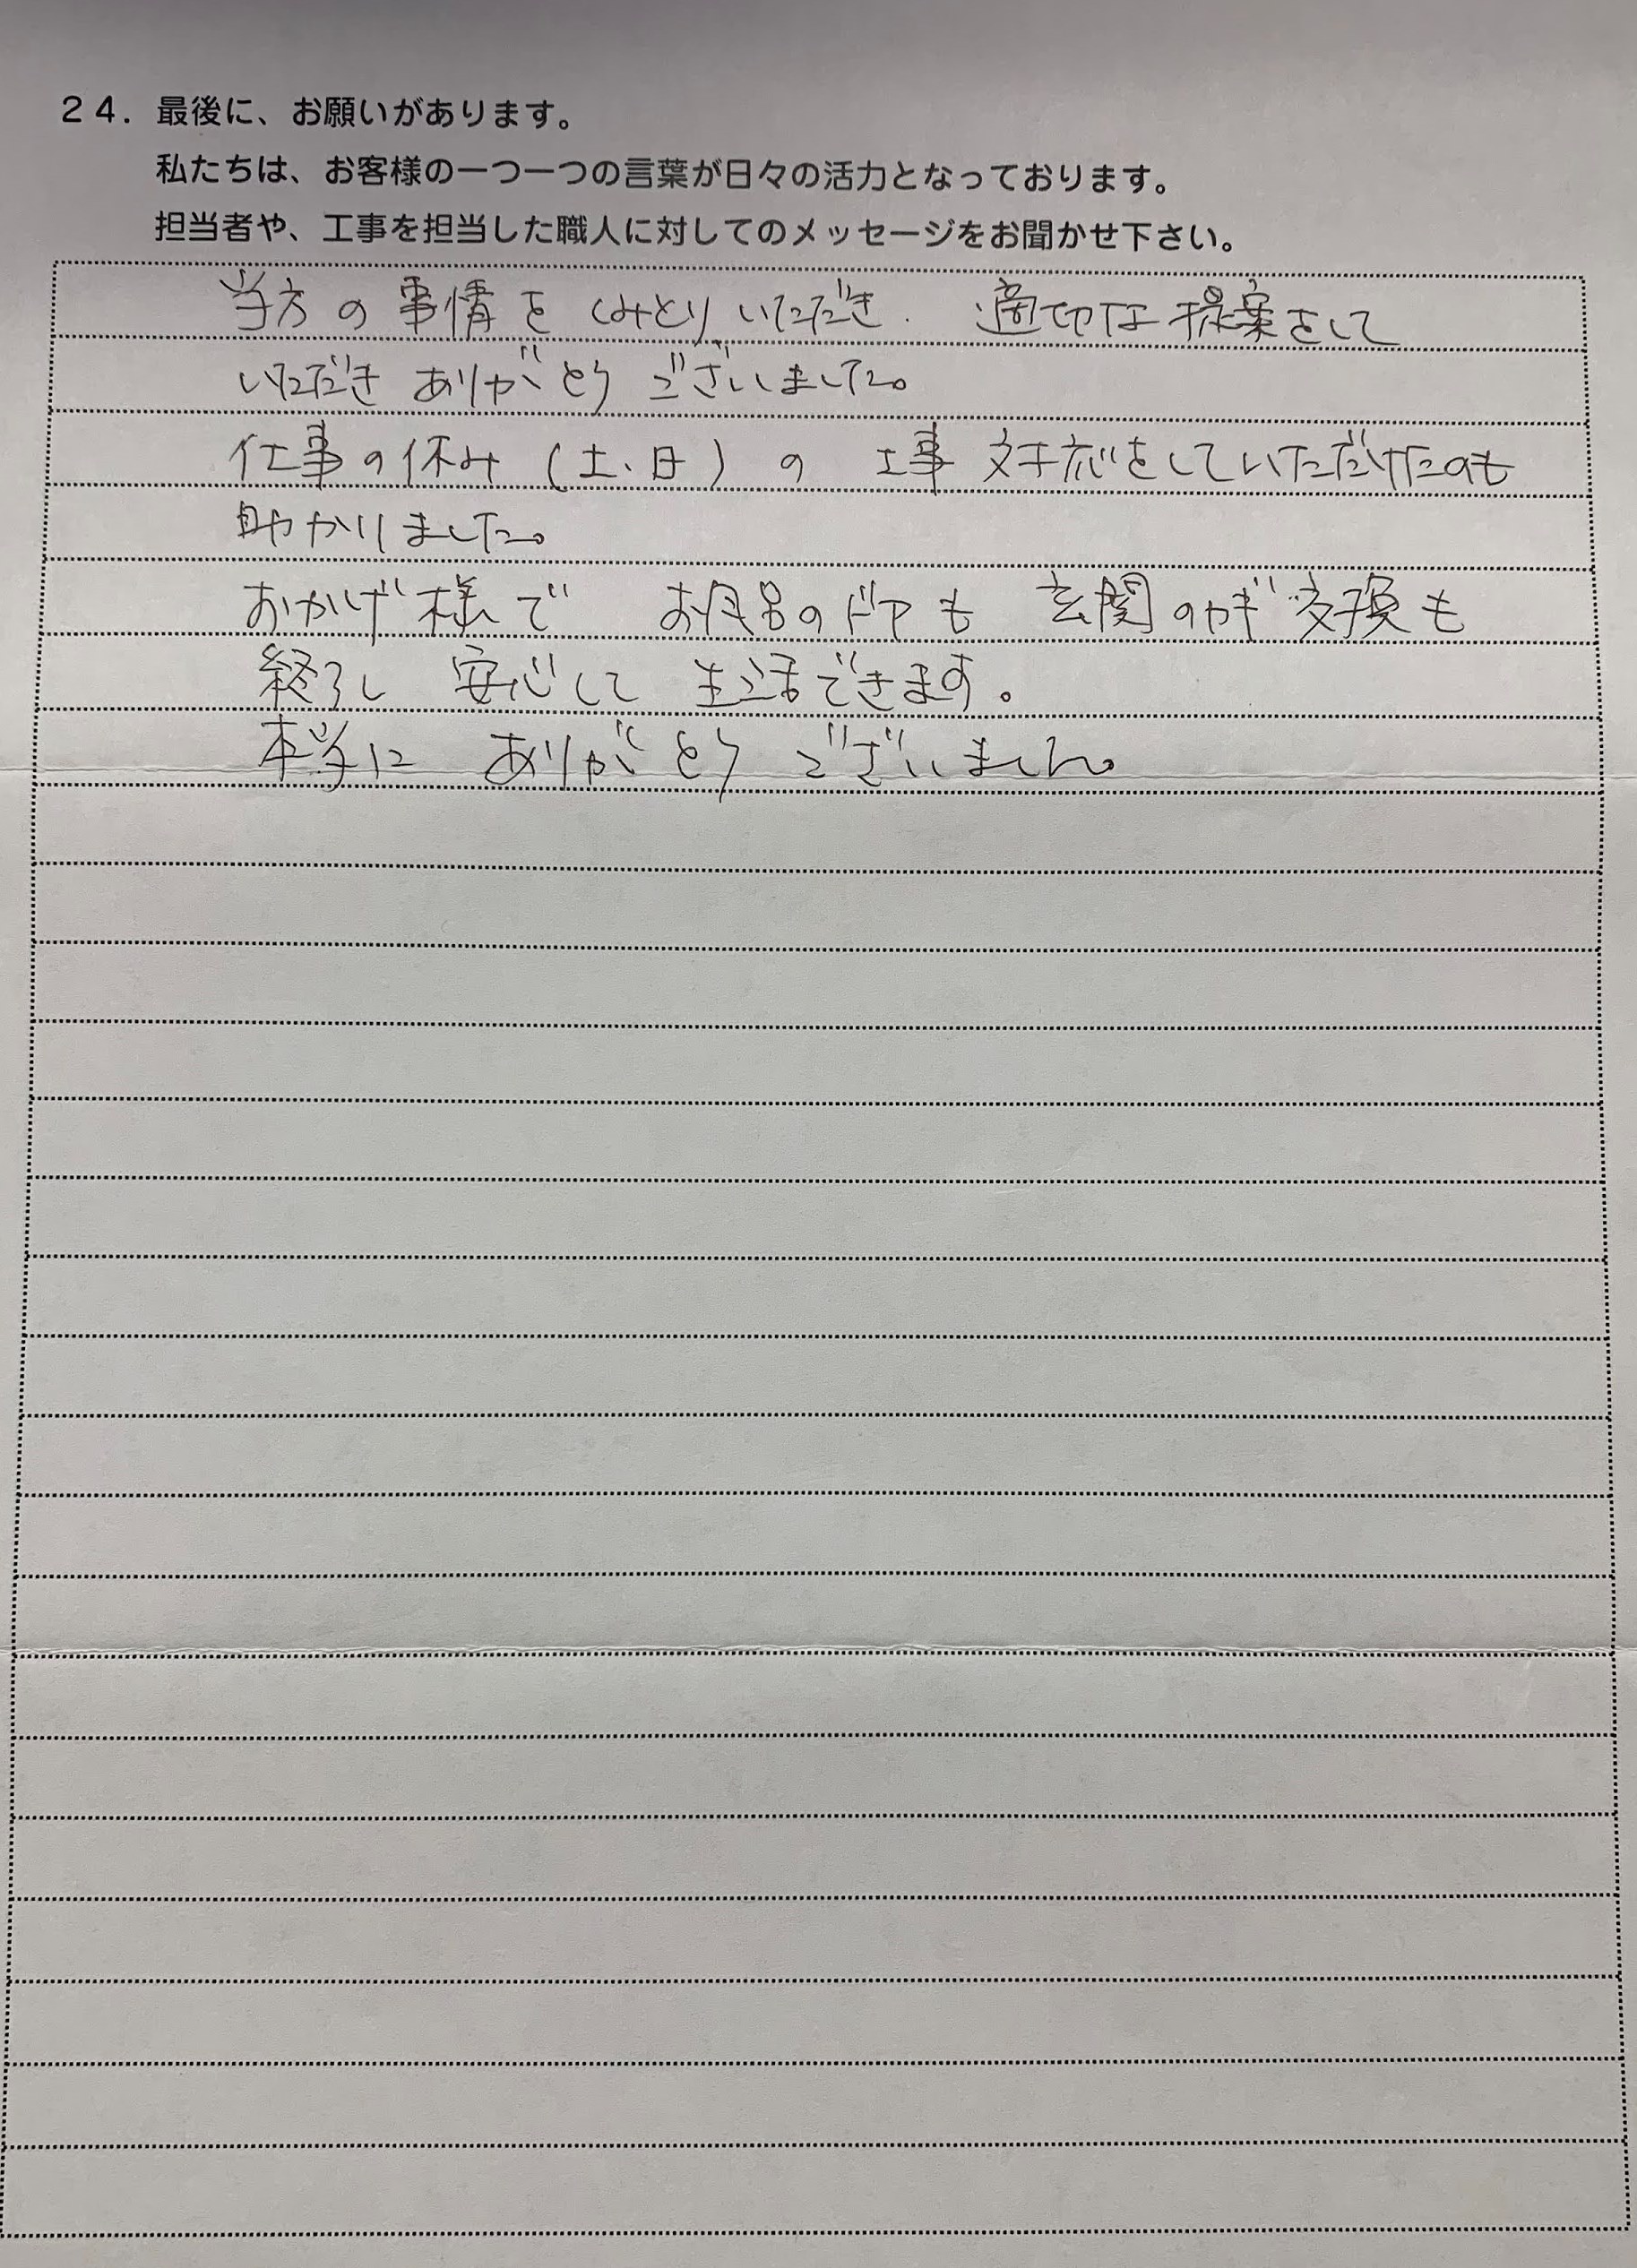 ２４．最後に、お願いがあります。
私たちは、お客様の一つ一つの言葉が日々の活力となっております。
担当者や、工事を担当した職人に対してのメッセージをお聞かせ下さい。
当方の事情をくみとりいただき、適切な提案をして
いただきありがとうございました。
仕事の休み（土、日）の工事対応をしていただけたのも
助かりました。
おかげ様でお風呂のドアも玄関のカギ交換も
終了し安心して生活できます。
本当にありがとうございました。